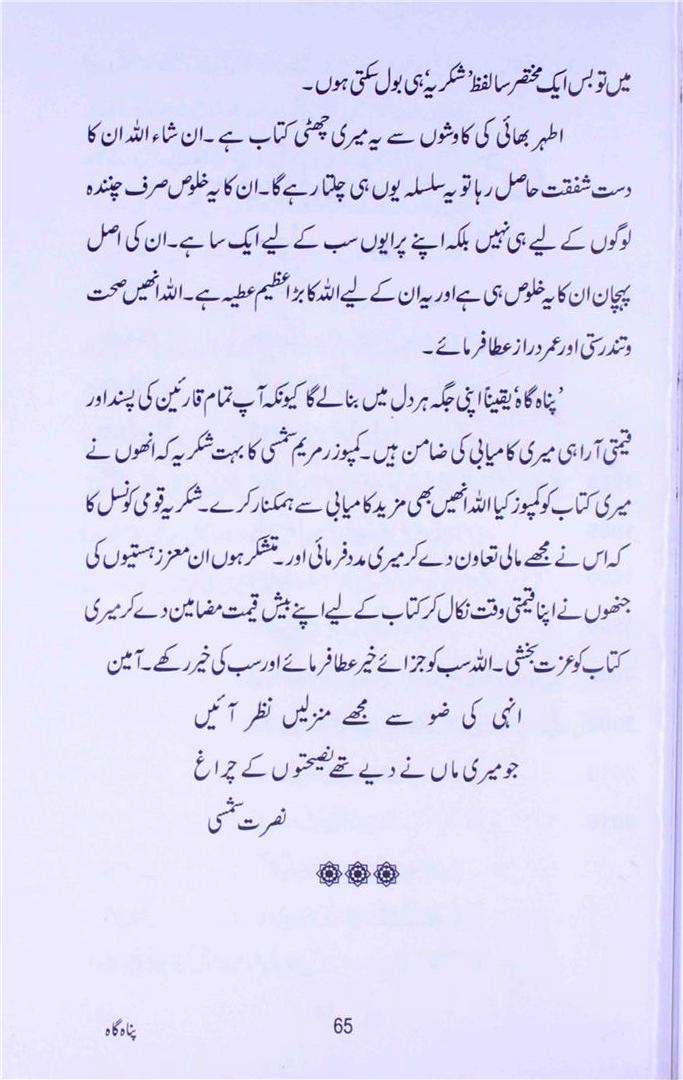 میں تو بس ایک مختصر سا لفظ ’شکریہ‘ ہی بول سکتی ہوں۔
اطہر بھائی کی کاوشوں سے یہ میری چھٹی کتاب ہے۔ ان شاء اللہ ان کا
دست شفقت حاصل رہا تو یہ سلسلہ یوں ہی چلتا رہے گا۔ ان کا یہ خلوص صرف چنندہ
لوگوں کے لیے ہی نہیں بلکہ اپنے پرایوں سب کے لیے ایک سا ہے۔ ان کی اصل
پہچان ان کا یہ خلوص ہی ہے اور یہ ان کے لیے اللہ کا بڑا عظیم عطیہ ہے۔ اللہ انھیں صحت
و تندرستی اور عمر دراز عطا فرمائے۔
’پناہ گاہ‘ یقیناً اپنی جگہ ہر دل میں بنا لے گا کیونکہ آپ تمام قارئین کی پسند اور
قیمتی آرا ہی میری کامیابی کی ضامن ہیں۔ کمپوزر مریم شمسی کا بہت شکریہ کہ انھوں نے
میری کتاب کو کمپوز کیا اللہ انھیں بھی مزید کامیابی سے ہمکنار کرے۔ شکریہ قومی کونسل کا
کہ اس نے مجھے مالی تعاون دے کر میری مدد فرمائی اور۔ متشکر ہوں ان معزز ہستیوں کی
جنھوں نے اپنا قیمتی وقت نکال کر کتاب کے لیے اپنے بیش قیمت مضامین دے کر میری
کتاب کو عزت بخشی۔ اللہ سب کو جزائے خیر عطا فرمائے اور سب کی خیر رکھے۔ آمین
انہی کی ضو سے مجھے منزلیں نظر آئیں
جو میری ماں نے دیے تھے نصیحتوں کے چراغ
نصرت شمسی
65
پناہ گاہ